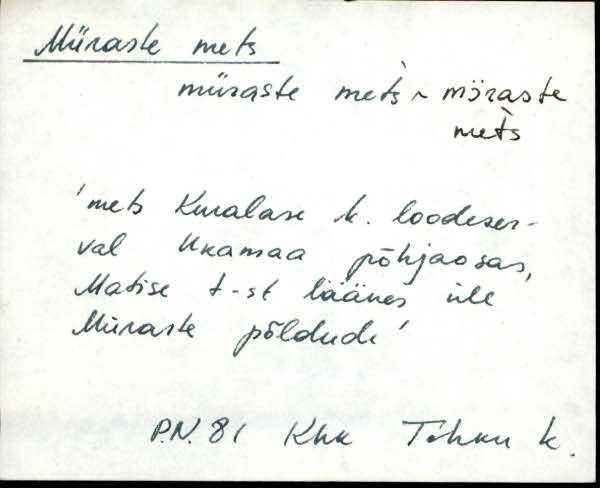 Müraste mets
müraste mets̀ ~ möraste
mets̀
'mets Kuralase k. loodeser-
val Ukamaa põhjaosas,
Matise t-st läänes üle
Müraste põldude'
P.N. 81 Khk Tõhku k.